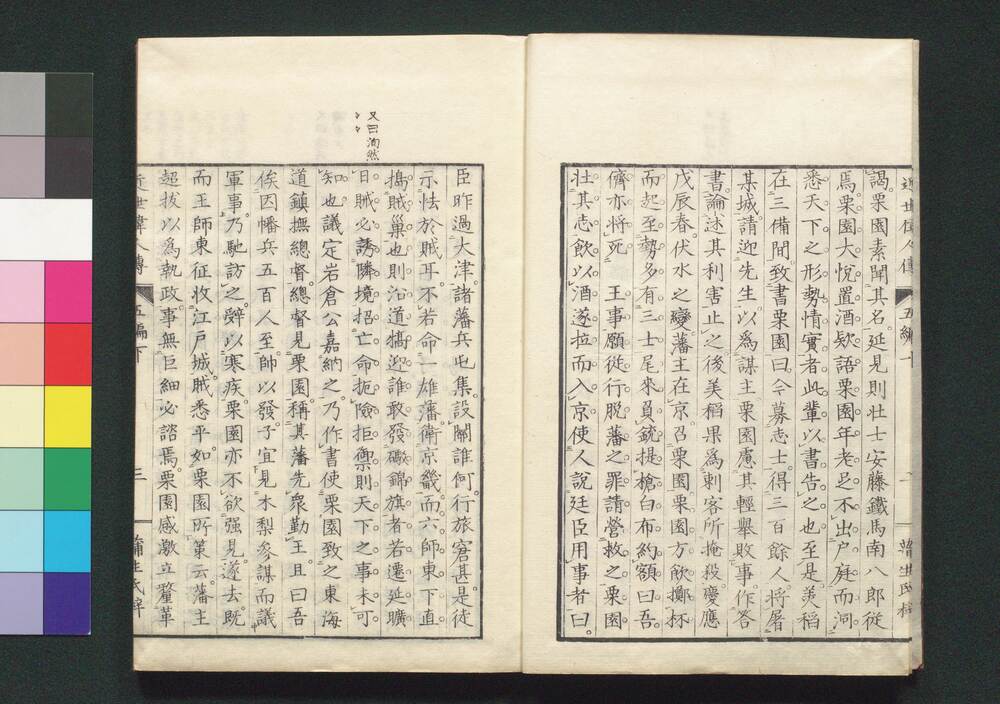 近世偉人傳 五編下
蒲生氏梓
謁栗園素聞其名。延見則壯士安藤鐵馬南八郎從
焉。栗園大悅置酒欵語栗園年老足不出户庭而洞
悉天下之形勢情實者此輩以書告之也至是美稻
在三備間。致書栗園曰。今募志士。得三百餘人將屠
某城。請迎先生。以爲謀主栗園慮其輕擧敗事作答
書。論述其利害止之後美稻果爲刺客所掩殺。慶應
戊辰春。伏水之變藩主在京召栗園栗園方飲擲杯
而起至勢多有三士尾來負銃提槍白布約額曰吾
儕亦將死 王事願從行脫藩之罪請營救之栗園
壯其志飲以酒遂拉而入京使人說廷臣用事者曰。
又曰洵然
臣昨過大津。諸藩兵屯集。設關誰何。行旅窘甚。是徒
示怯於賊耳。不若命一雄藩衛京畿。而六師東下直
搗賊巢也則沿道犒迎誰敢發礮錦旗者若遷延曠
日賊必誘隣境招亡命扼險拒禦則天下之事未可
知也議定岩倉公嘉納之。乃作書使栗園致之東海
道鎮撫總督。總督見栗園。稱其藩先衆勤王且曰吾
俟因幡兵五百人至。師以發。子宜見木梨參謀。而議
軍事。乃馳訪之。辭以寒疾栗園亦不欲强見。遂去。既
而王師東征收江戸城。賊悉平。如栗園所策云藩主
超拔以爲執政。事無巨細必諮焉。栗園感激立釐革
近世偉人傳 五編下
三
蒲生氏梓